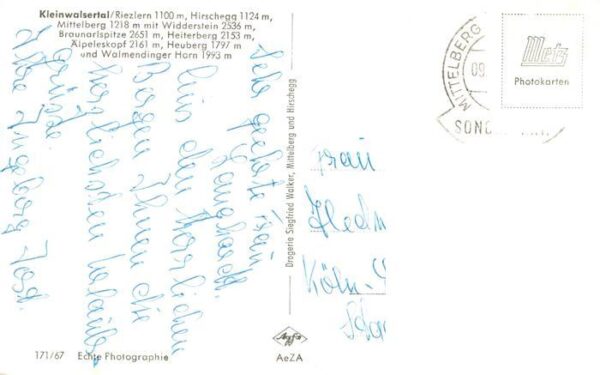 Kleinwalsertal/Riezlern 1100 m, Hirschegg 1124 m,
Mittelberg 1218 m mit Widderstein 2536 m,
Braunarlspitze 2651 m, Heiterberg 2153 m,
Älpeleskopf 2161 m, Heuberg 1797 m
und Walmendinger Horn 1993 m
Sehr geehrte Frau
Aus den herrlichen
Bergen Ihnen die
herzlichsten Urlaubs
grüße
Ihre Ingeborg Jost.
Drogerie Siegfried Walker, Mittelberg und Hirschegg
MITTELBERG
09.
Metz
Photokarten
Frau
Hedw
Köln-
171/67 Echte Photographie
Agfa
AeZA